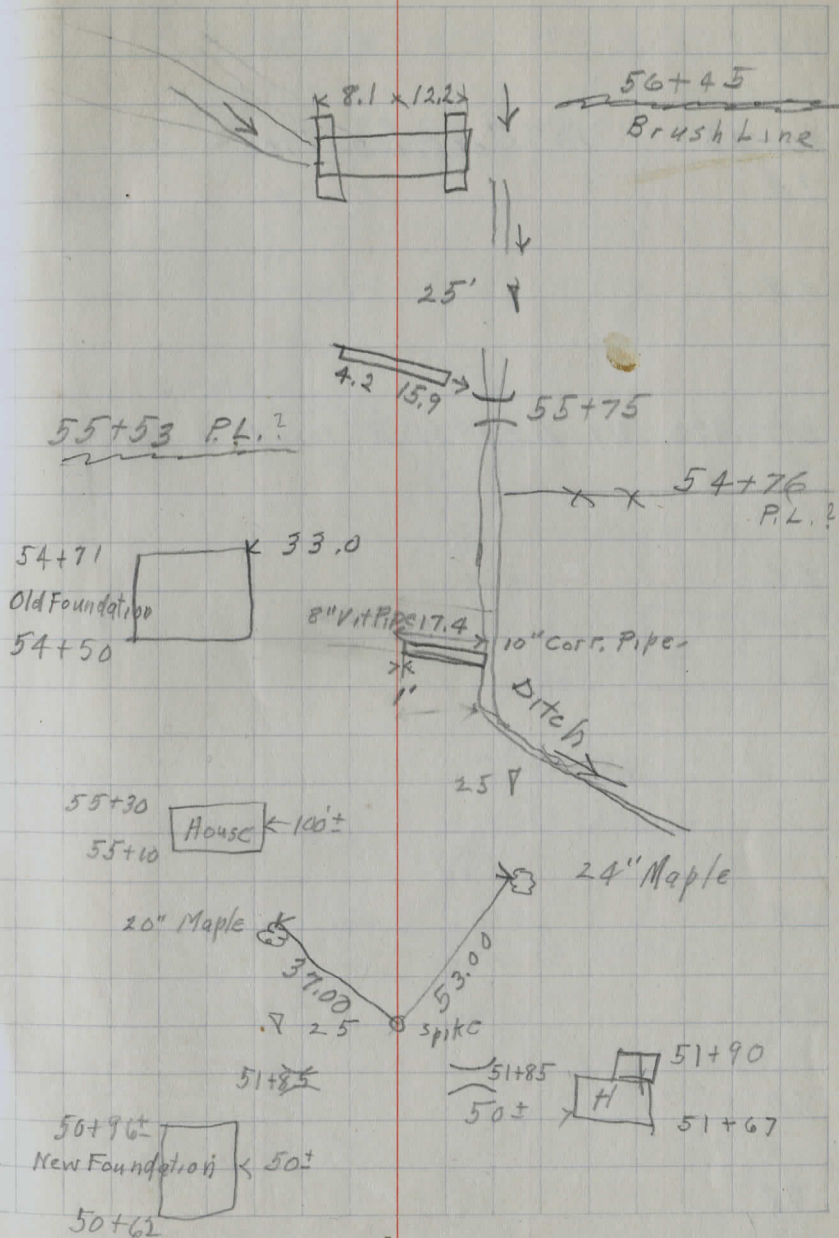 56+45
8.1 x 12.2
Brush Line
25'
4.2 15.9
55+75
55+53 P.L.?
54+76
P.L.?
54+71
33.0
Old Foundation
8" Vit Pipe 17.4
10" Corr. Pipe
54+50
1'
Ditch
25
55+30
House
100'±
55+10
24" Maple
20" Maple
37.00
53.00
25
spike
51+85
51+85
51+90
50±
H
51+67
50+96±
New Foundation
50±
50+62